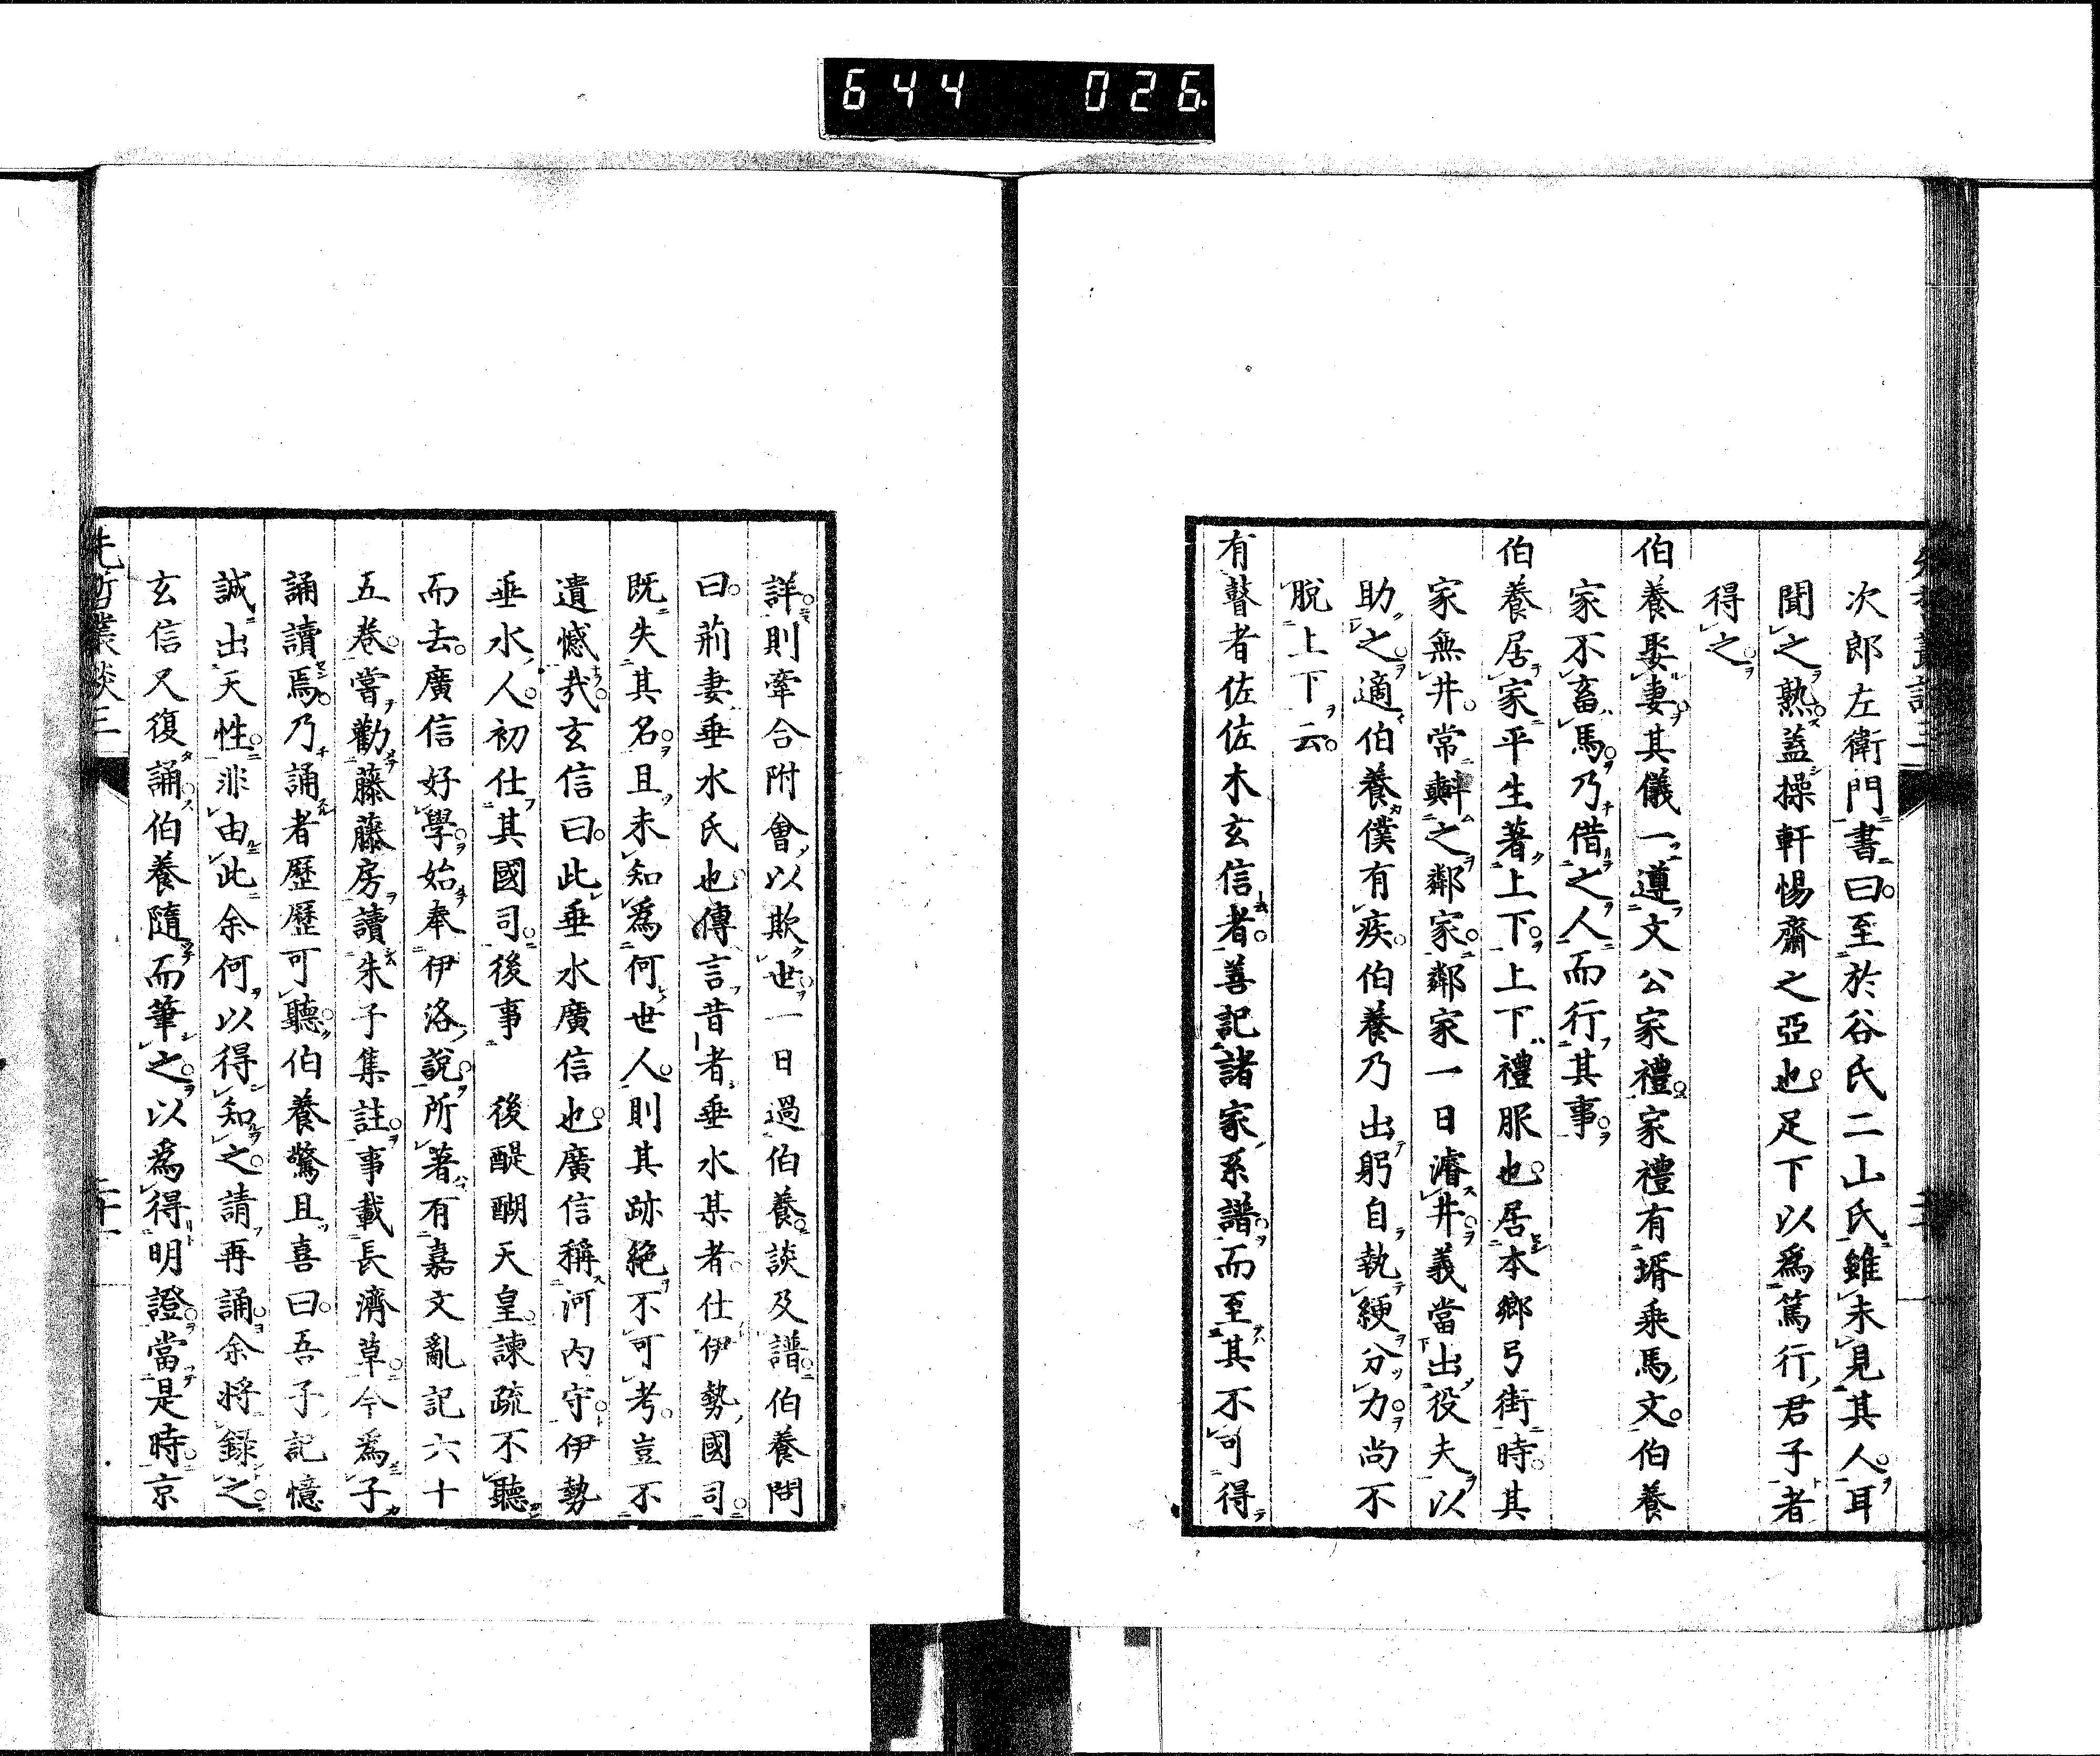 644 026
次郎左衛門書曰至於谷氏二山氏雖未見其人耳
聞之熟蓋操軒惕齋之亞也足下以為篤行君子者
得之
伯養娶妻其儀一遵文公家禮家禮有壻乘馬文伯養
家不畜馬乃借之人而行其事
伯養居家平生著上下上下禮服也居本鄉弓街時其
家無井常㪺之鄰家鄰家一日濬井義當出役夫以
助之適伯養僕有疾伯養乃出躬自執綆分力尚不
脫上下云
有瞽者佐佐木玄信者善記諸家系譜而至其不可得
詳則牽合附會以欺世一日過伯養談及譜伯養問
曰荊妻垂水氏也傳言昔者垂水某者仕伊勢國司
既失其名且未知為何世人則其跡絕不可考豈不
遺憾哉玄信曰此垂水廣信也廣信稱河內守伊勢
垂水人初仕其國司後事 後醍醐天皇諫疏不聽
而去廣信好學始奉伊洛說所著有嘉文亂記六十
五卷嘗勸藤藤房讀朱子集註事載長濟草今為子
誦讀焉乃誦者歷歷可聽伯養驚且喜曰吾子記憶
誠出天性非由此余何以得知之請再誦余將錄之
玄信又復誦伯養隨而筆之以為得明證當是時京
先哲叢談三